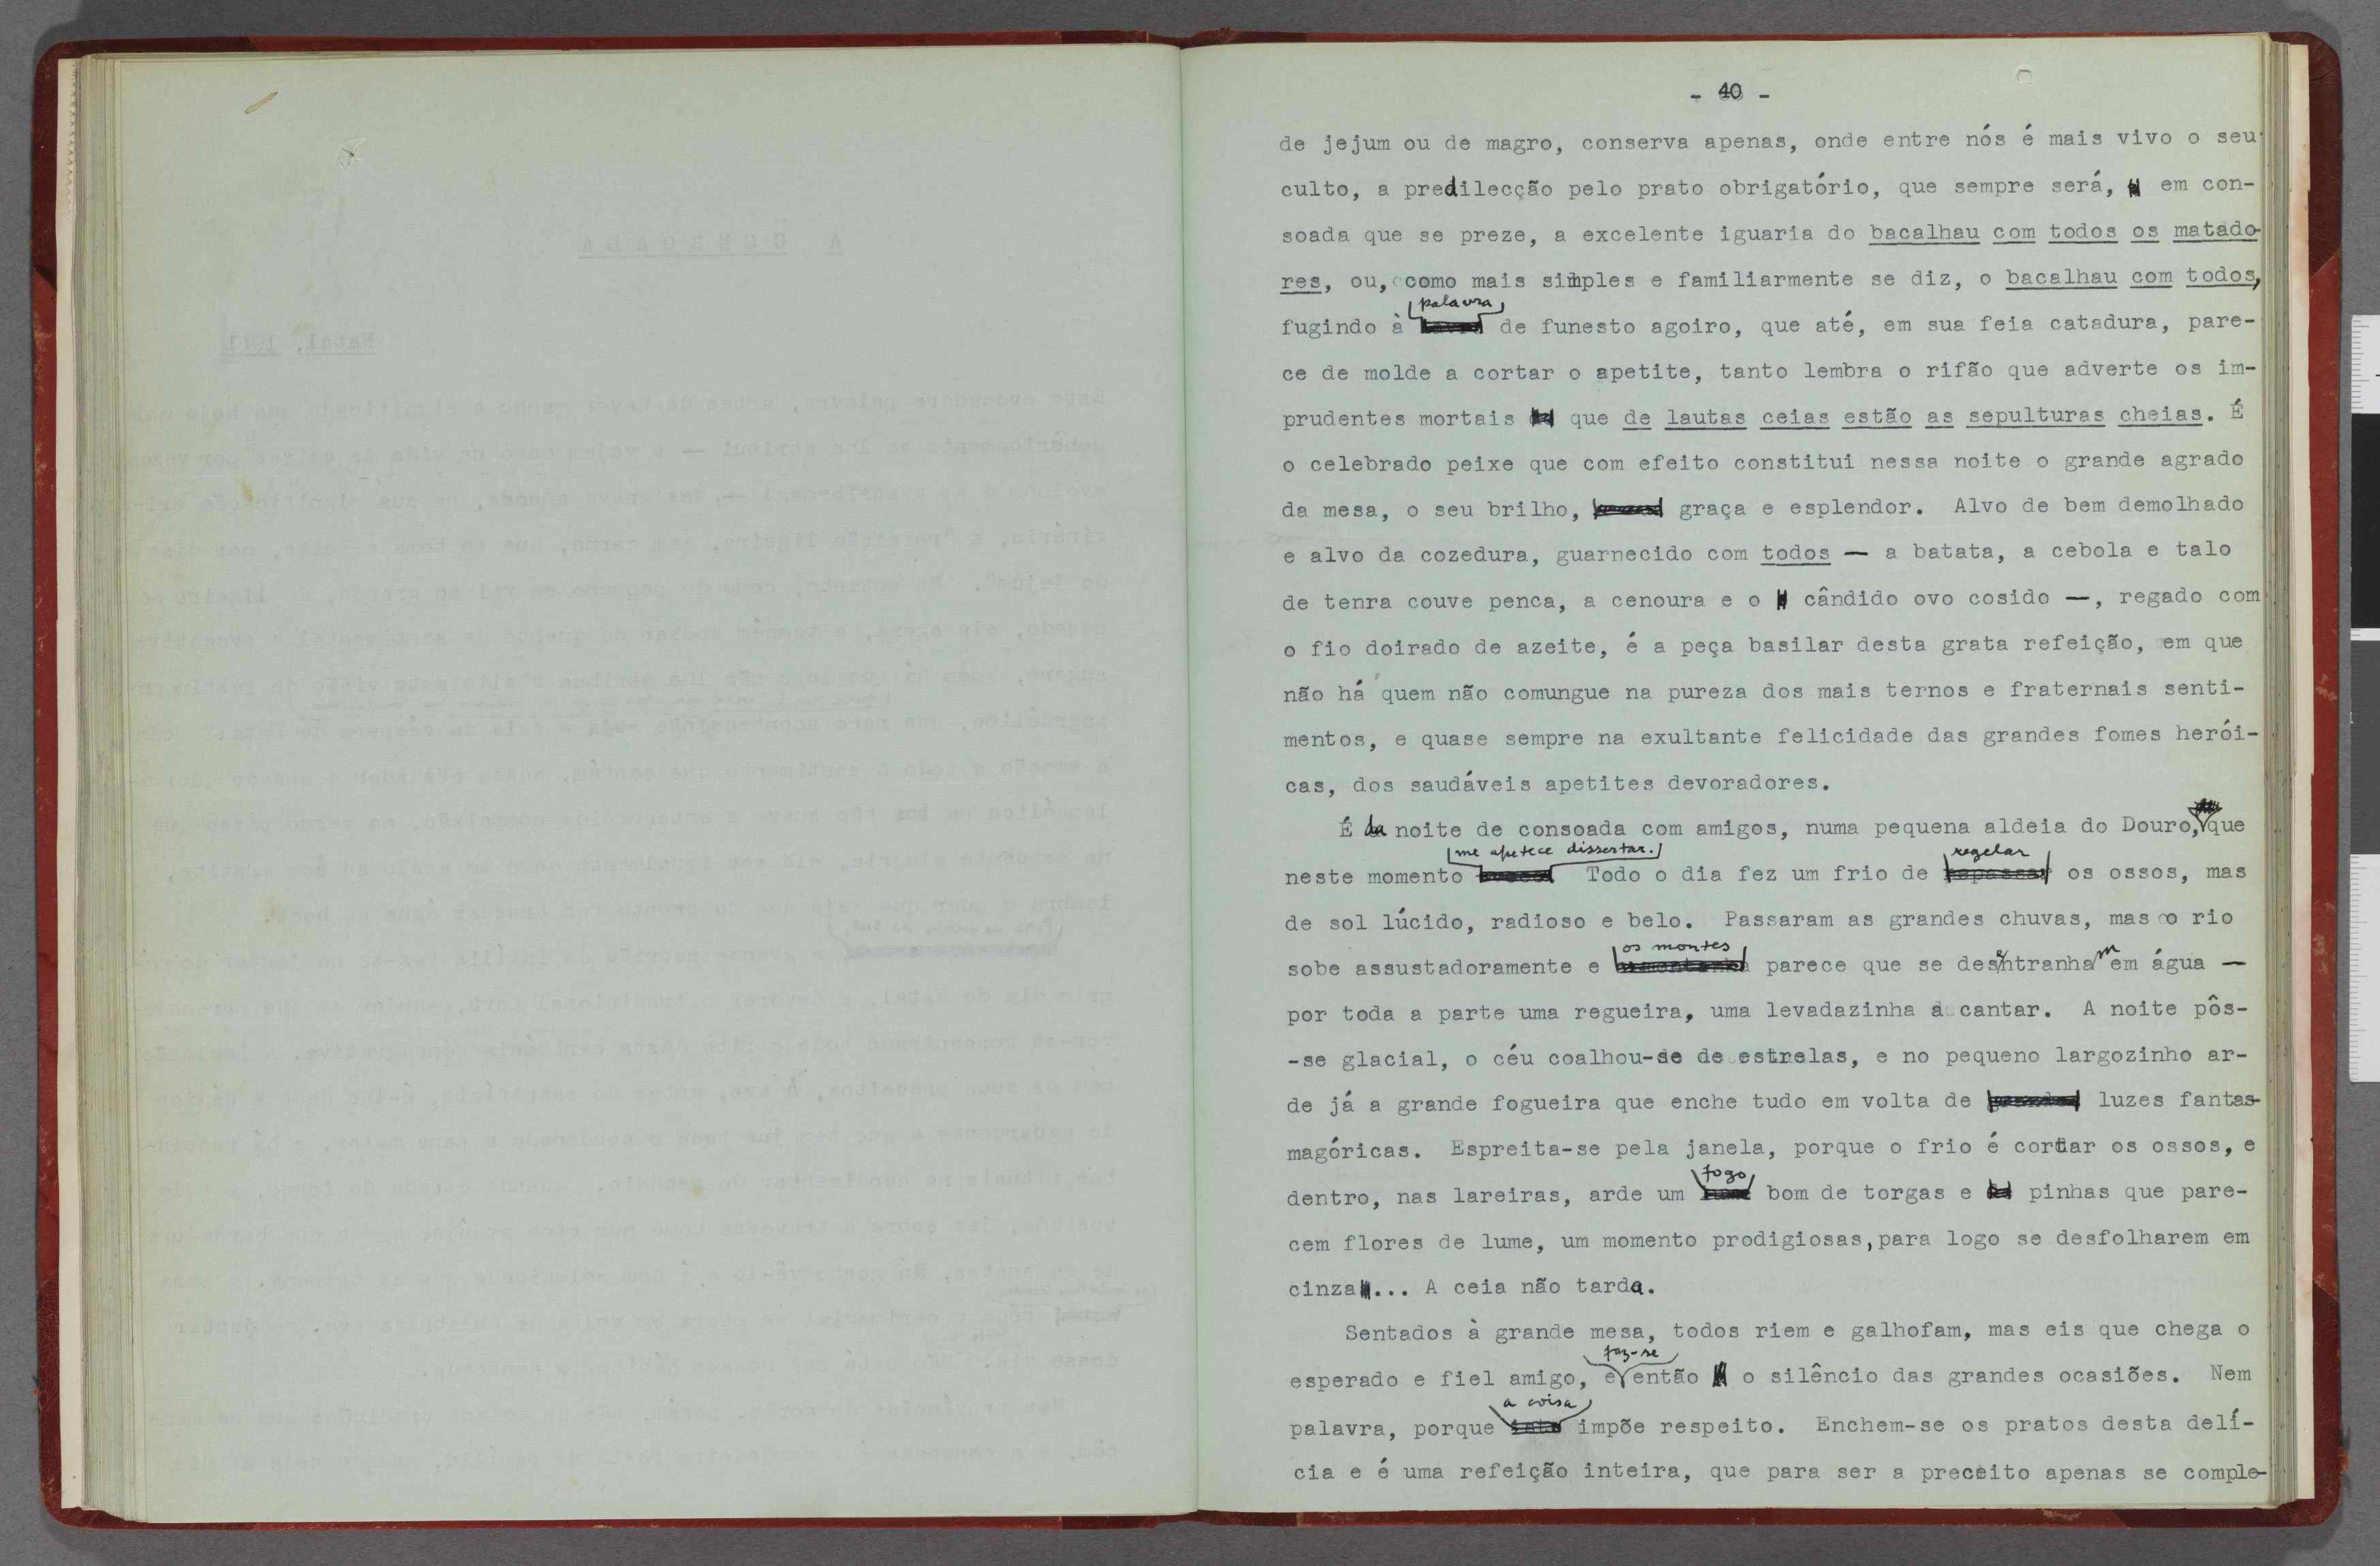 - 40 -
de jejum ou de magro, conserva apenas, onde entre nós é mais vivo o seu
culto, a predilecção pelo prato obrigatório, que sempre será, em con-
soada que se preze, a excelente iguaria do bacalhau com todos os matado-
res, ou, como mais simples e familiarmente se diz, o bacalhau com todos,
palavra
fugindo à de funesto agoiro, que até, em sua feia catadura, pare-
ce de molde a cortar o apetite, tanto lembra o rifão que adverte os im-
prudentes mortais que de lautas ceias estão as sepulturas cheias. É
o celebrado peixe que com efeito constitui nessa noite o grande agrado
da mesa, o seu brilho, graça e esplendor. Alvo de bem demolhado
e alvo da cozedura, guarnecido com todos — a batata, a cebola e talo
de tenra couve penca, a cenoura e o cândido ovo cosido —, regado com
o fio doirado de azeite, é a peça basilar desta grata refeição, em que
não há quem não comungue na pureza dos mais ternos e fraternais senti-
mentos, e quase sempre na exultante felicidade das grandes fomes herói-
cas, dos saudáveis apetites devoradores.
É da noite de consoada com amigos, numa pequena aldeia do Douro, que
me apetece dissertar. regelar
neste momento Todo o dia fez um frio de repassar os ossos, mas
de sol lúcido, radioso e belo. Passaram as grandes chuvas, mas o rio
os montes
sobe assustadoramente e parece que se desentranham em água —
por toda a parte uma regueira, uma levadazinha a cantar. A noite pôs-
-se glacial, o céu coalhou-se de estrelas, e no pequeno largozinho ar-
de já a grande fogueira que enche tudo em volta de luzes fantas-
magóricas. Espreita-se pela janela, porque o frio é cortar os ossos, e
fogo
dentro, nas lareiras, arde um bom de torgas e pinhas que pare-
cem flores de lume, um momento prodigiosas, para logo se desfolharem em
cinza... A ceia não tarda.
Sentados à grande mesa, todos riem e galhofam, mas eis que chega o
faz-se
esperado e fiel amigo, e então o silêncio das grandes ocasiões. Nem
a coisa
palavra, porque isto impõe respeito. Enchem-se os pratos desta delí-
cia e é uma refeição inteira, que para ser a preceito apenas se comple-